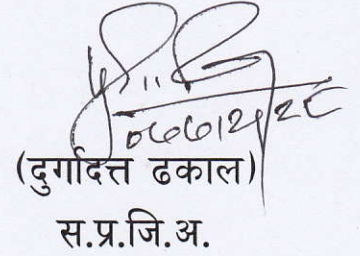 (दुर्गादत्त ढकाल)
स.प्र.जि.अ.